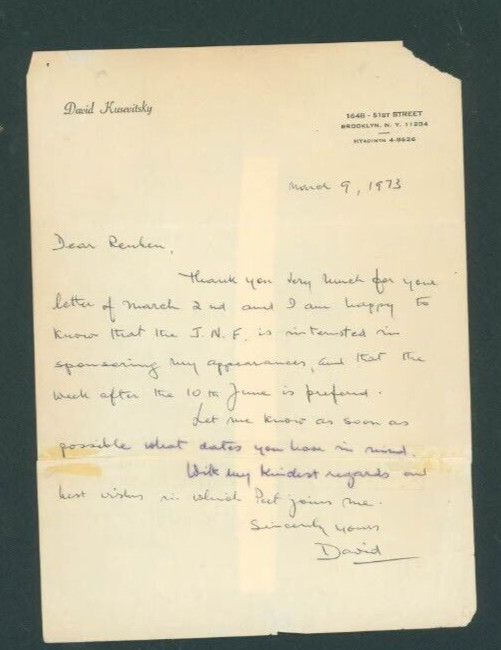 David Kusevitsky
1648 - 51ST STREET
BROOKLYN, N. Y. 11204
HYACINTH 4-8626
March 9, 1973
Dear Reuben,
Thank you very much for your
letter of March 2nd and I am happy to
know that the J. N. F. is interested in
sponsoring my appearances, and that the
week after the 10th June is prefered.
Let me know as soon as
possible what dates you have in mind.
With my kindest regards and
best wishes in which Pat joins me.
Sincerely yours
David